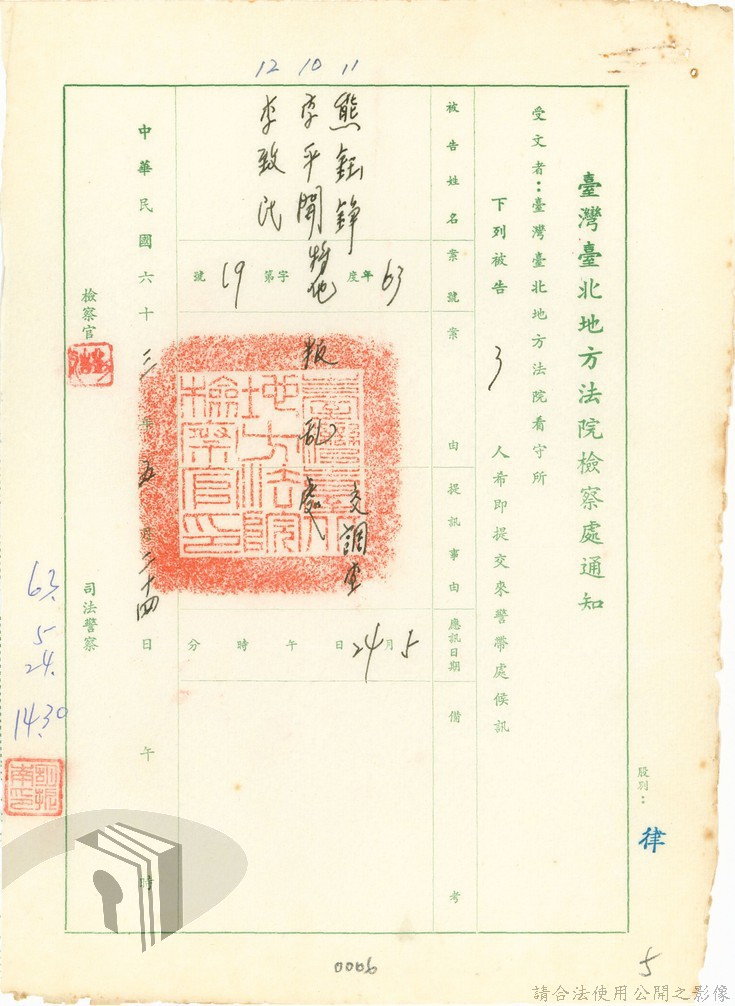 臺灣臺北地方法院檢察處通知
股別：律
受文者：臺灣臺北地方法院看守所
下列被告3人希即提交來警帶處候訊
被告姓名
11 10 12
熊鈺錚
李平開
李致民
案號
63年度特他字第19號
案由
叛亂處
提訊事由
交調查
應訊日期
5月24日午時分
備考
臺灣臺北地方法院檢察官印
中華民國六十三年五月二十四日午時
檢察官
司法警察
63.
5
24.
14.30
0006
5
請合法使用公開之影像